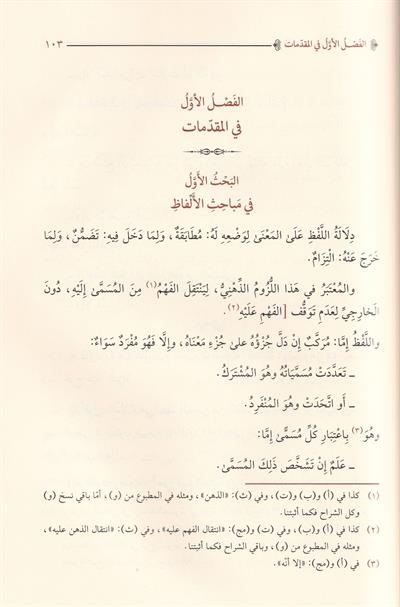 الفَصْلُ الأَوَّلُ في المقدّمات ١٠٣
الفَصْلُ الأوَّلُ
في المقدّمات
البَحْثُ الأَوَّلُ
في مَباحِثِ الأَلْفاظِ
دِلَالَةُ اللَّفْظِ عَلَىٰ المَعْنَىٰ لِوَضْعِهِ لَهُ: مُطَابَقَةٌ، وَلِمَا دَخَلَ فِيهِ: تَضَمُّنٌ، وَلِمَا
خَرَجَ عَنْهُ: الْتِزَامٌ.
والمُعْتَبَرُ في هَذَا اللُّزُومُ الذِّهْنِيُّ، لِيَنْتَقِلَ الفَهْمُ(١) مِنَ المُسَمَّىٰ إِلَيْهِ، دُونَ
الخَارِجِيِّ لِعَدَمِ تَوَقُّفِ [الفَهْمِ عَلَيْهِ(٢).
واللَّفْظُ إِمَّا: مُرَكَّبٌ إِنْ دَلَّ جُزْؤُهُ علىٰ جُزْءِ مَعْنَاهُ، وإلَّا فَهُوَ مُفْرَدٌ سَوَاءٌ:
ـ تَعَدَّدَتْ مُسَمَّيَاتُهُ وهُوَ المُشْتَرَكُ.
ـ أَو اتَّحَدَتْ وهُوَ المُنْفَرِدُ.
وهُوَ(٣) بِاعْتِبَارِ كُلِّ مُسَمًّى إمَّا:
ـ عَلَمٌ إِنْ تَشَخَّصَ ذَلِكَ المُسَمَّىٰ.
(١) كذا في (أ) و(ب) و(ت)، وفي (ث): «الذهن»، ومثله في المطبوع من (و)، أمّا باقي نسخ (و)
وكل الشراح فكما أثبتنا.
(٢) كذا في (أ) و(ب)، وفي (ت) و(مج): «انتقال الفهم عليه»، وفي (ث): «انتقال الذهن عليه»،
ومثله في المطبوع من (و)، وباقي الشراح فكما أثبتنا.
(٣) في (أ) و(مج): «إلا أنّه».